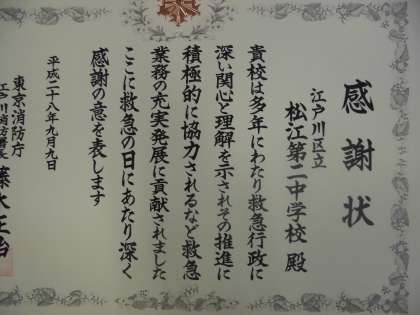 感謝状
江戸川区立
松江第二中学校 殿
貴校は多年にわたり救急行政に
深い関心と理解を示されその推進に
積極的に協力されるなど救急
業務の充実発展に貢献されました
ここに救急の日にあたり深く
感謝の意を表します
平成二十八年九月九日
東京消防庁
江戸川消防署長